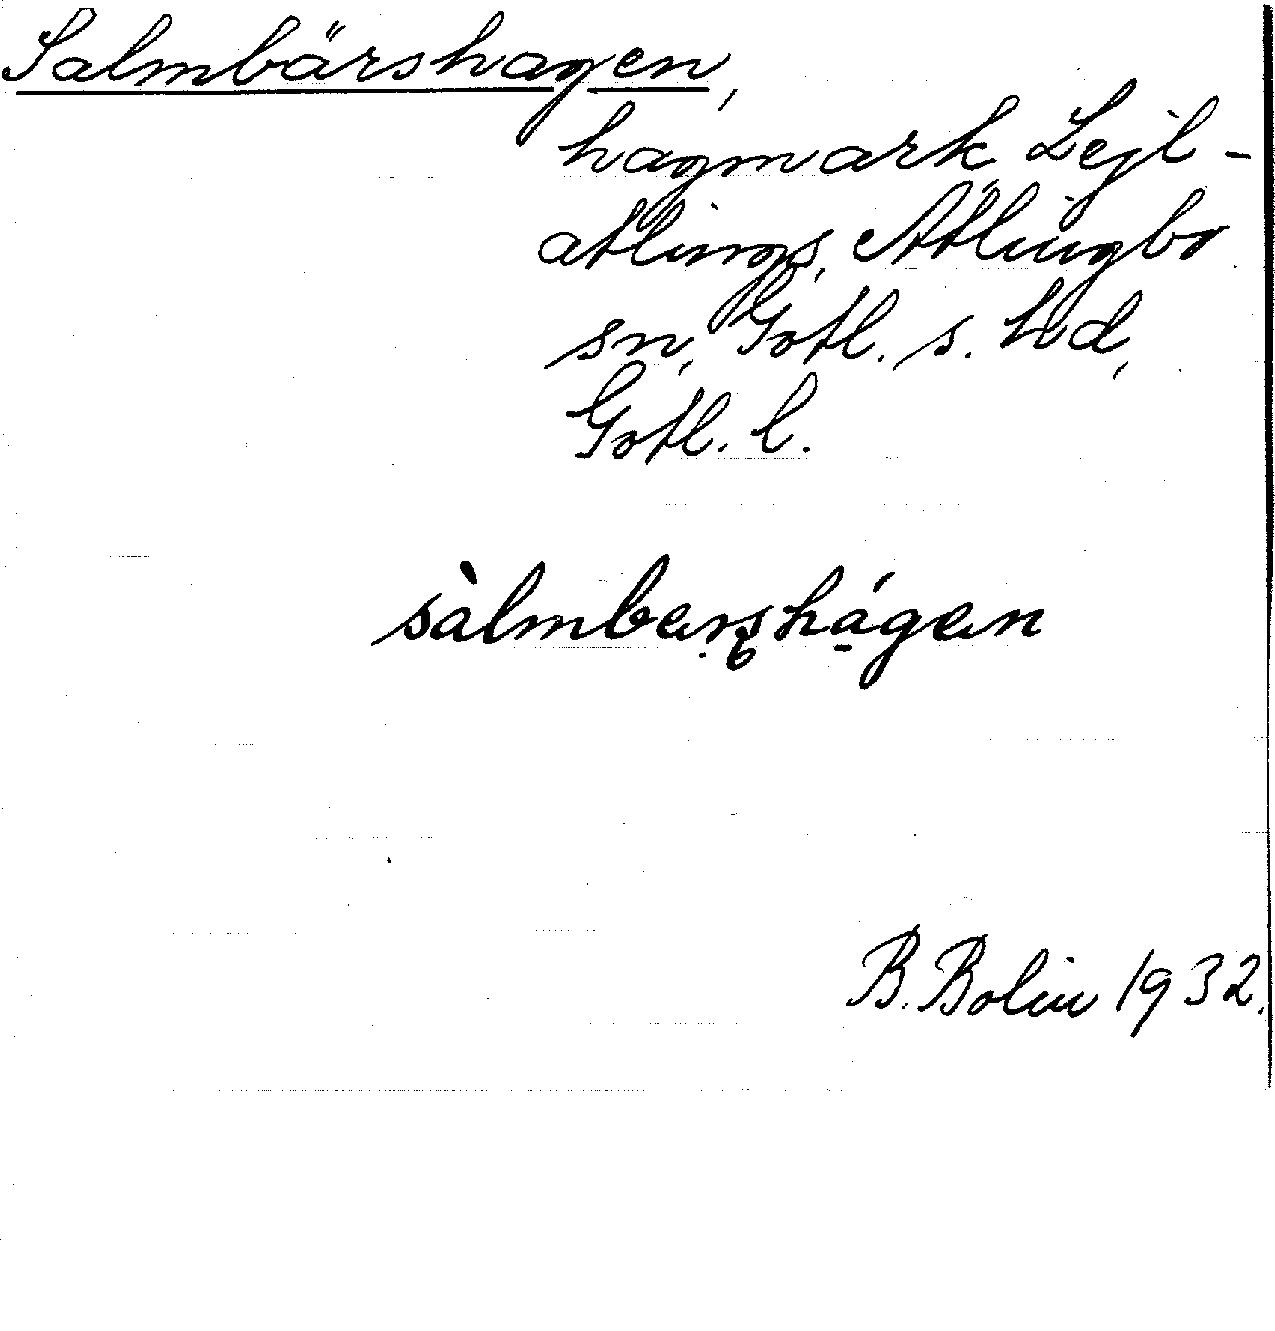 Salmbärshagen,
hagmark, Lejl-
atlings, Atlingbo
sn, Gotl. s. hd,
Gotl. l.
sàlmbärshágän
B. Bolin 1932.